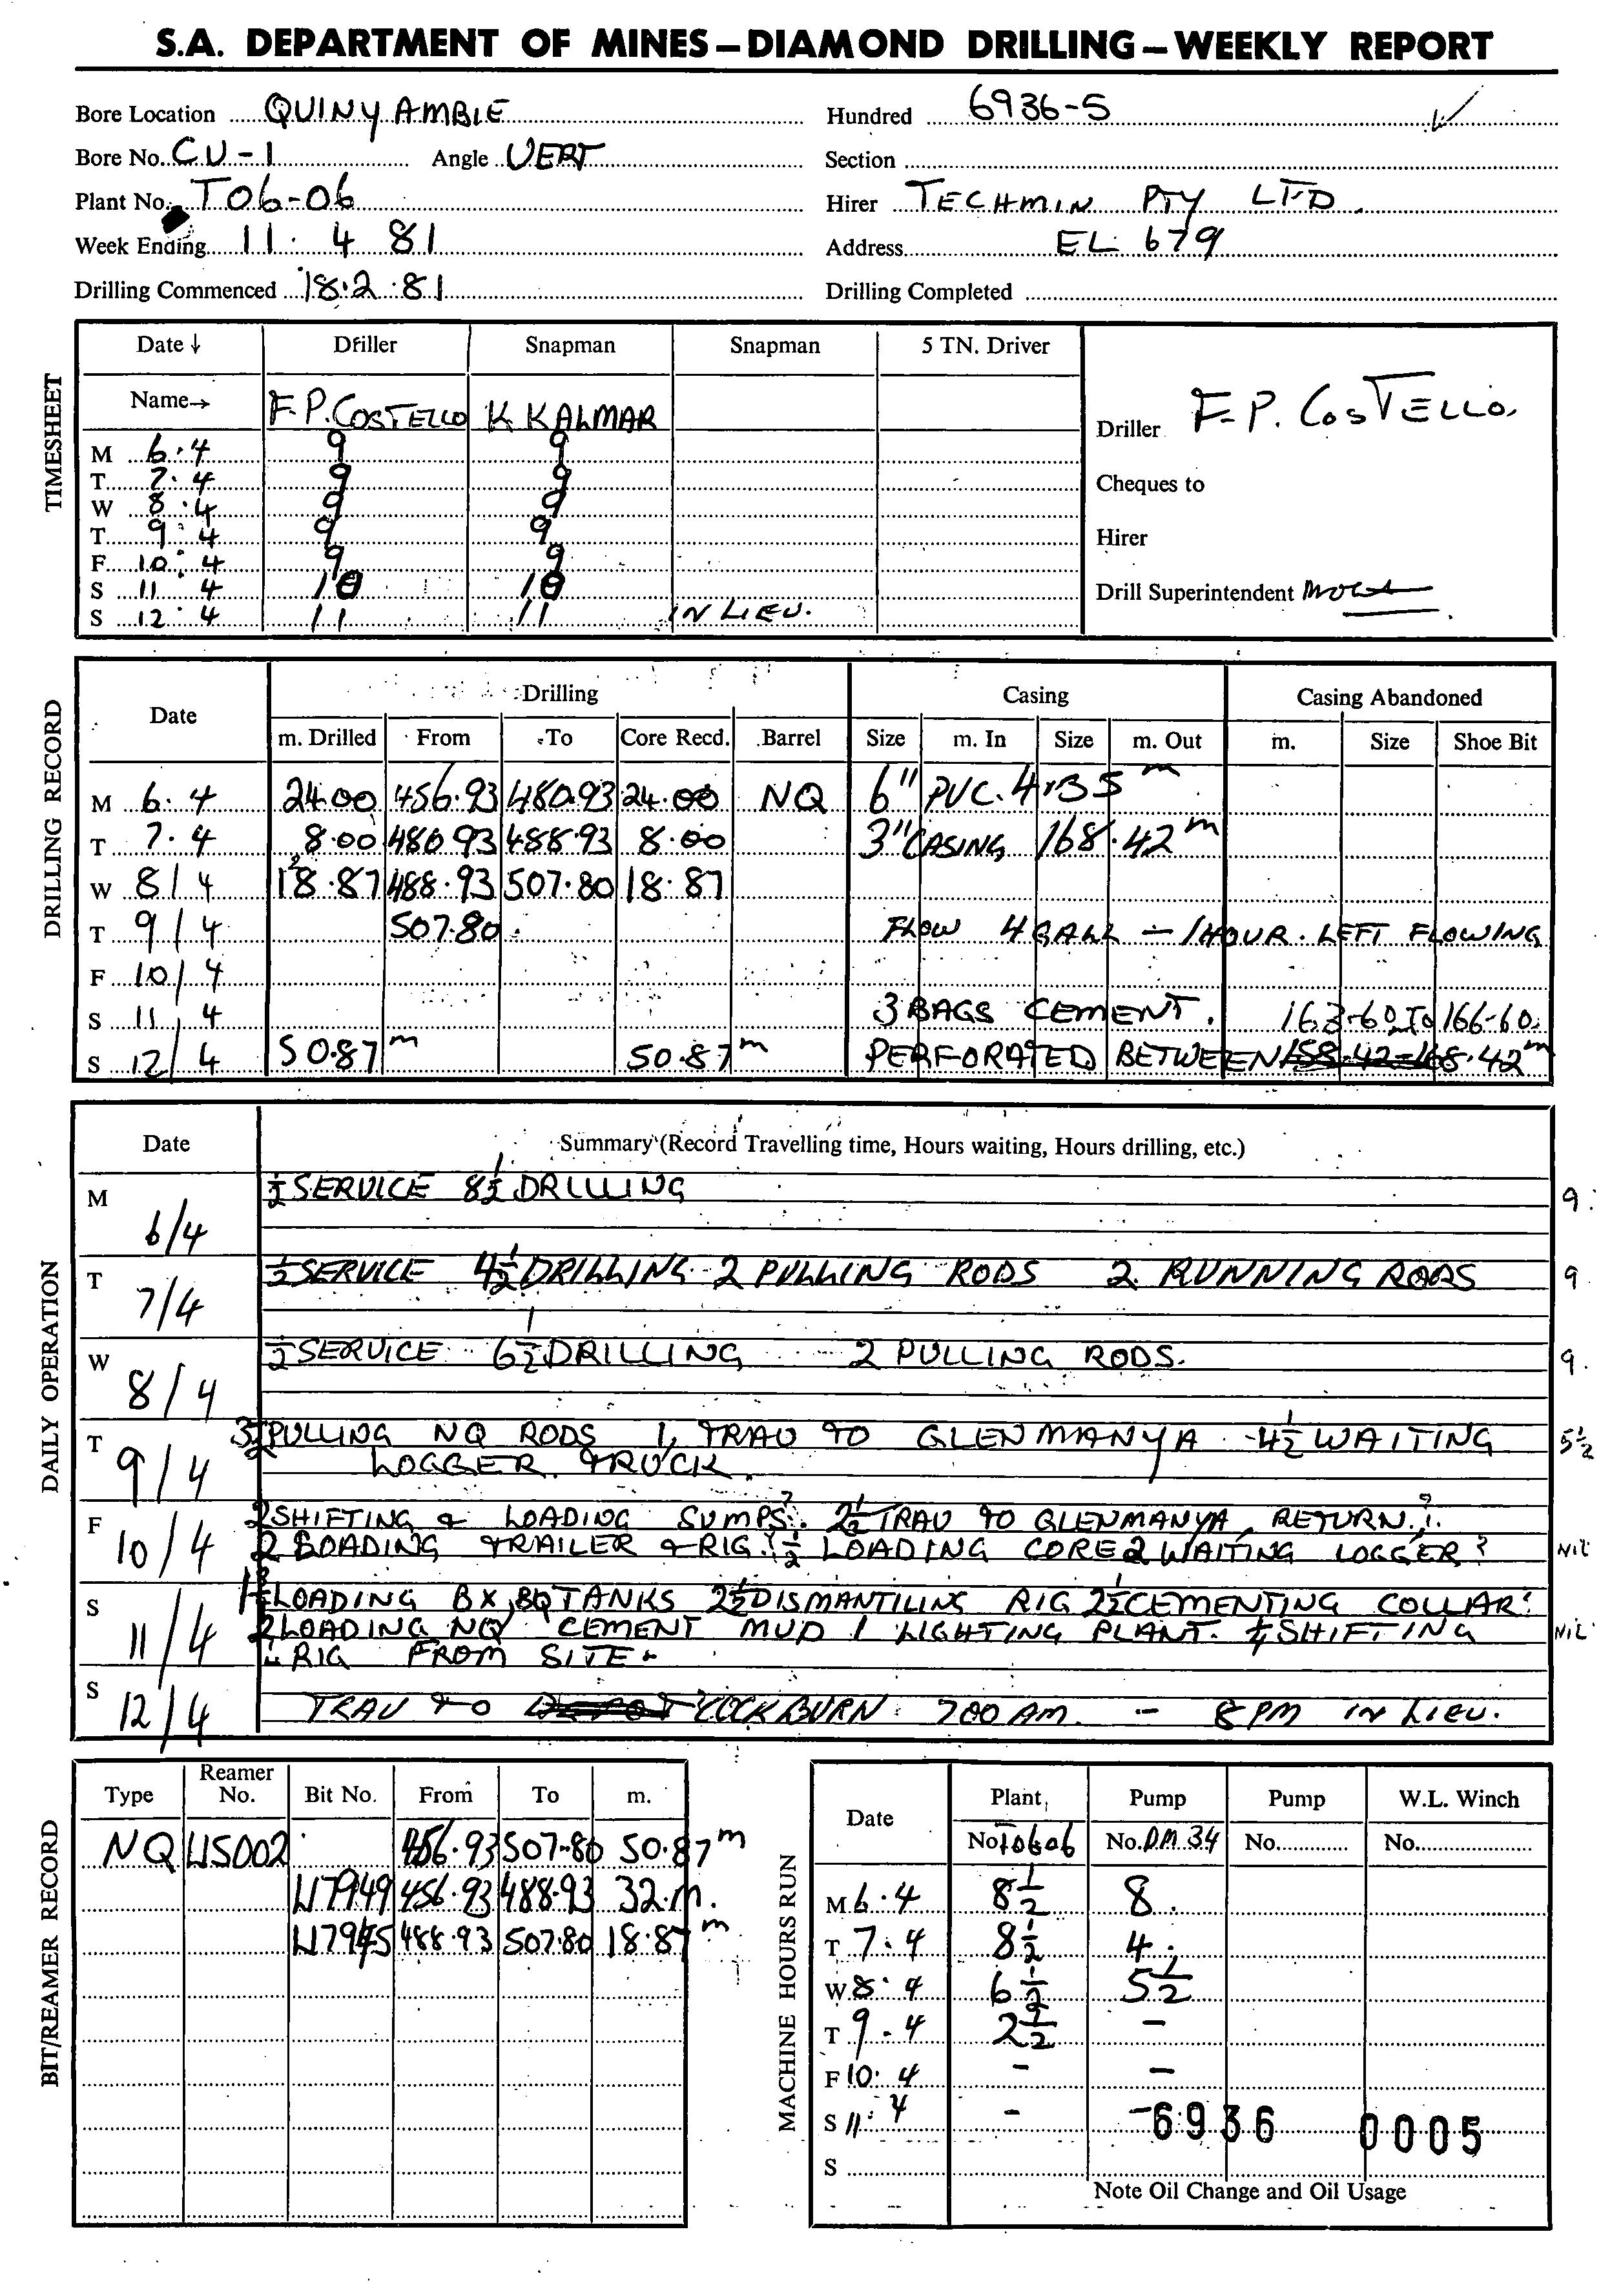 S.A. DEPARTMENT OF MINES – DIAMOND DRILLING – WEEKLY REPORT
Bore Location QUINYAMBIE Hundred 6936-5
Bore No. CU-1 Angle VERT Section
Plant No. T06-06 Hirer TECHMIN PTY LTD.
Week Ending 11. 4 81 Address EL 679
Drilling Commenced 18.2.81 Drilling Completed
TIMESHEET
Date ↓ Driller Snapman Snapman 5 TN. Driver
Name→ F.P. COSTELLO K KALMAR
Driller F.P. COSTELLO.
M 6.4 9 9
T 7.4 9 9
Cheques to
W 8.4 9 9
T 9.4 9 9
Hirer
F 10.4 9 9
S 11 4 10 10
Drill Superintendent
S 12.4 11 11 IN LIEU.
DRILLING RECORD
Date Drilling Casing Casing Abandoned
m. Drilled From To Core Recd. Barrel Size m. In Size m. Out m. Size Shoe Bit
M 6.4 24.00 456.93 480.93 24.00 NQ 6" PVC. 4.35 m
T 7.4 8.00 480 93 488.93 8.00 3" CASING 168.42 m
W 8/4 18.87 488.93 507.80 18.87
T 9/4 507.80 FLOW 4 GALL – 1 HOUR. LEFT FLOWING
F 10/4
S 11/4 3 BAGS CEMENT. 163-60 TO 166-60
S 12/4 50.87 m 50.87 m PERFORATED BETWEEN 158.42-168.42 m
DAILY OPERATION
Date Summary (Record Travelling time, Hours waiting, Hours drilling, etc.)
M 6/4 ½ SERVICE 8½ DRILLING 9
T 7/4 ½ SERVICE 4½ DRILLING 2 PULLING RODS 2 RUNNING RODS 9
W 8/4 ½ SERVICE 6½ DRILLING 2 PULLING RODS. 9
T 9/4 3½ PULLING NQ RODS 1, TRAV TO GLENMANYA 4½ WAITING 5½
LOGGER TRUCK.
F 10/4 2 SHIFTING & LOADING SUMPS? 2½ TRAV TO GLENMANYA, RETURN?
2 LOADING TRAILER & RIG. ½ LOADING CORE 2 WAITING LOGGER? NIL
S 11/4 1½ LOADING BX, BQ TANKS 2½ DISMANTILING RIG 2½ CEMENTING COLLAR.
2 LOADING NQ CEMENT MUD 1 LIGHTING PLANT. ½ SHIFTING NIL
RIG FROM SITE.
S 12/4 TRAV TO COCKBURN 700 AM – 8 PM IN LIEU.
BIT/REAMER RECORD
Type Reamer No. Bit No. From To m.
NQ WS002 456.93 507.80 50.87 m
W7949 456.93 488.93 32.m.
W7945 488.93 507.80 18.87 m
MACHINE HOURS RUN
Date Plant Pump Pump W.L. Winch
No. T0606 No. D.M. 34 No. No.
M 6.4 8½ 8
T 7.4 8½ 4
W 8.4 6½ 5½
T 9.4 2½ –
F 10.4 – –
S 11.4 – –
6936 0005
S
Note Oil Change and Oil Usage